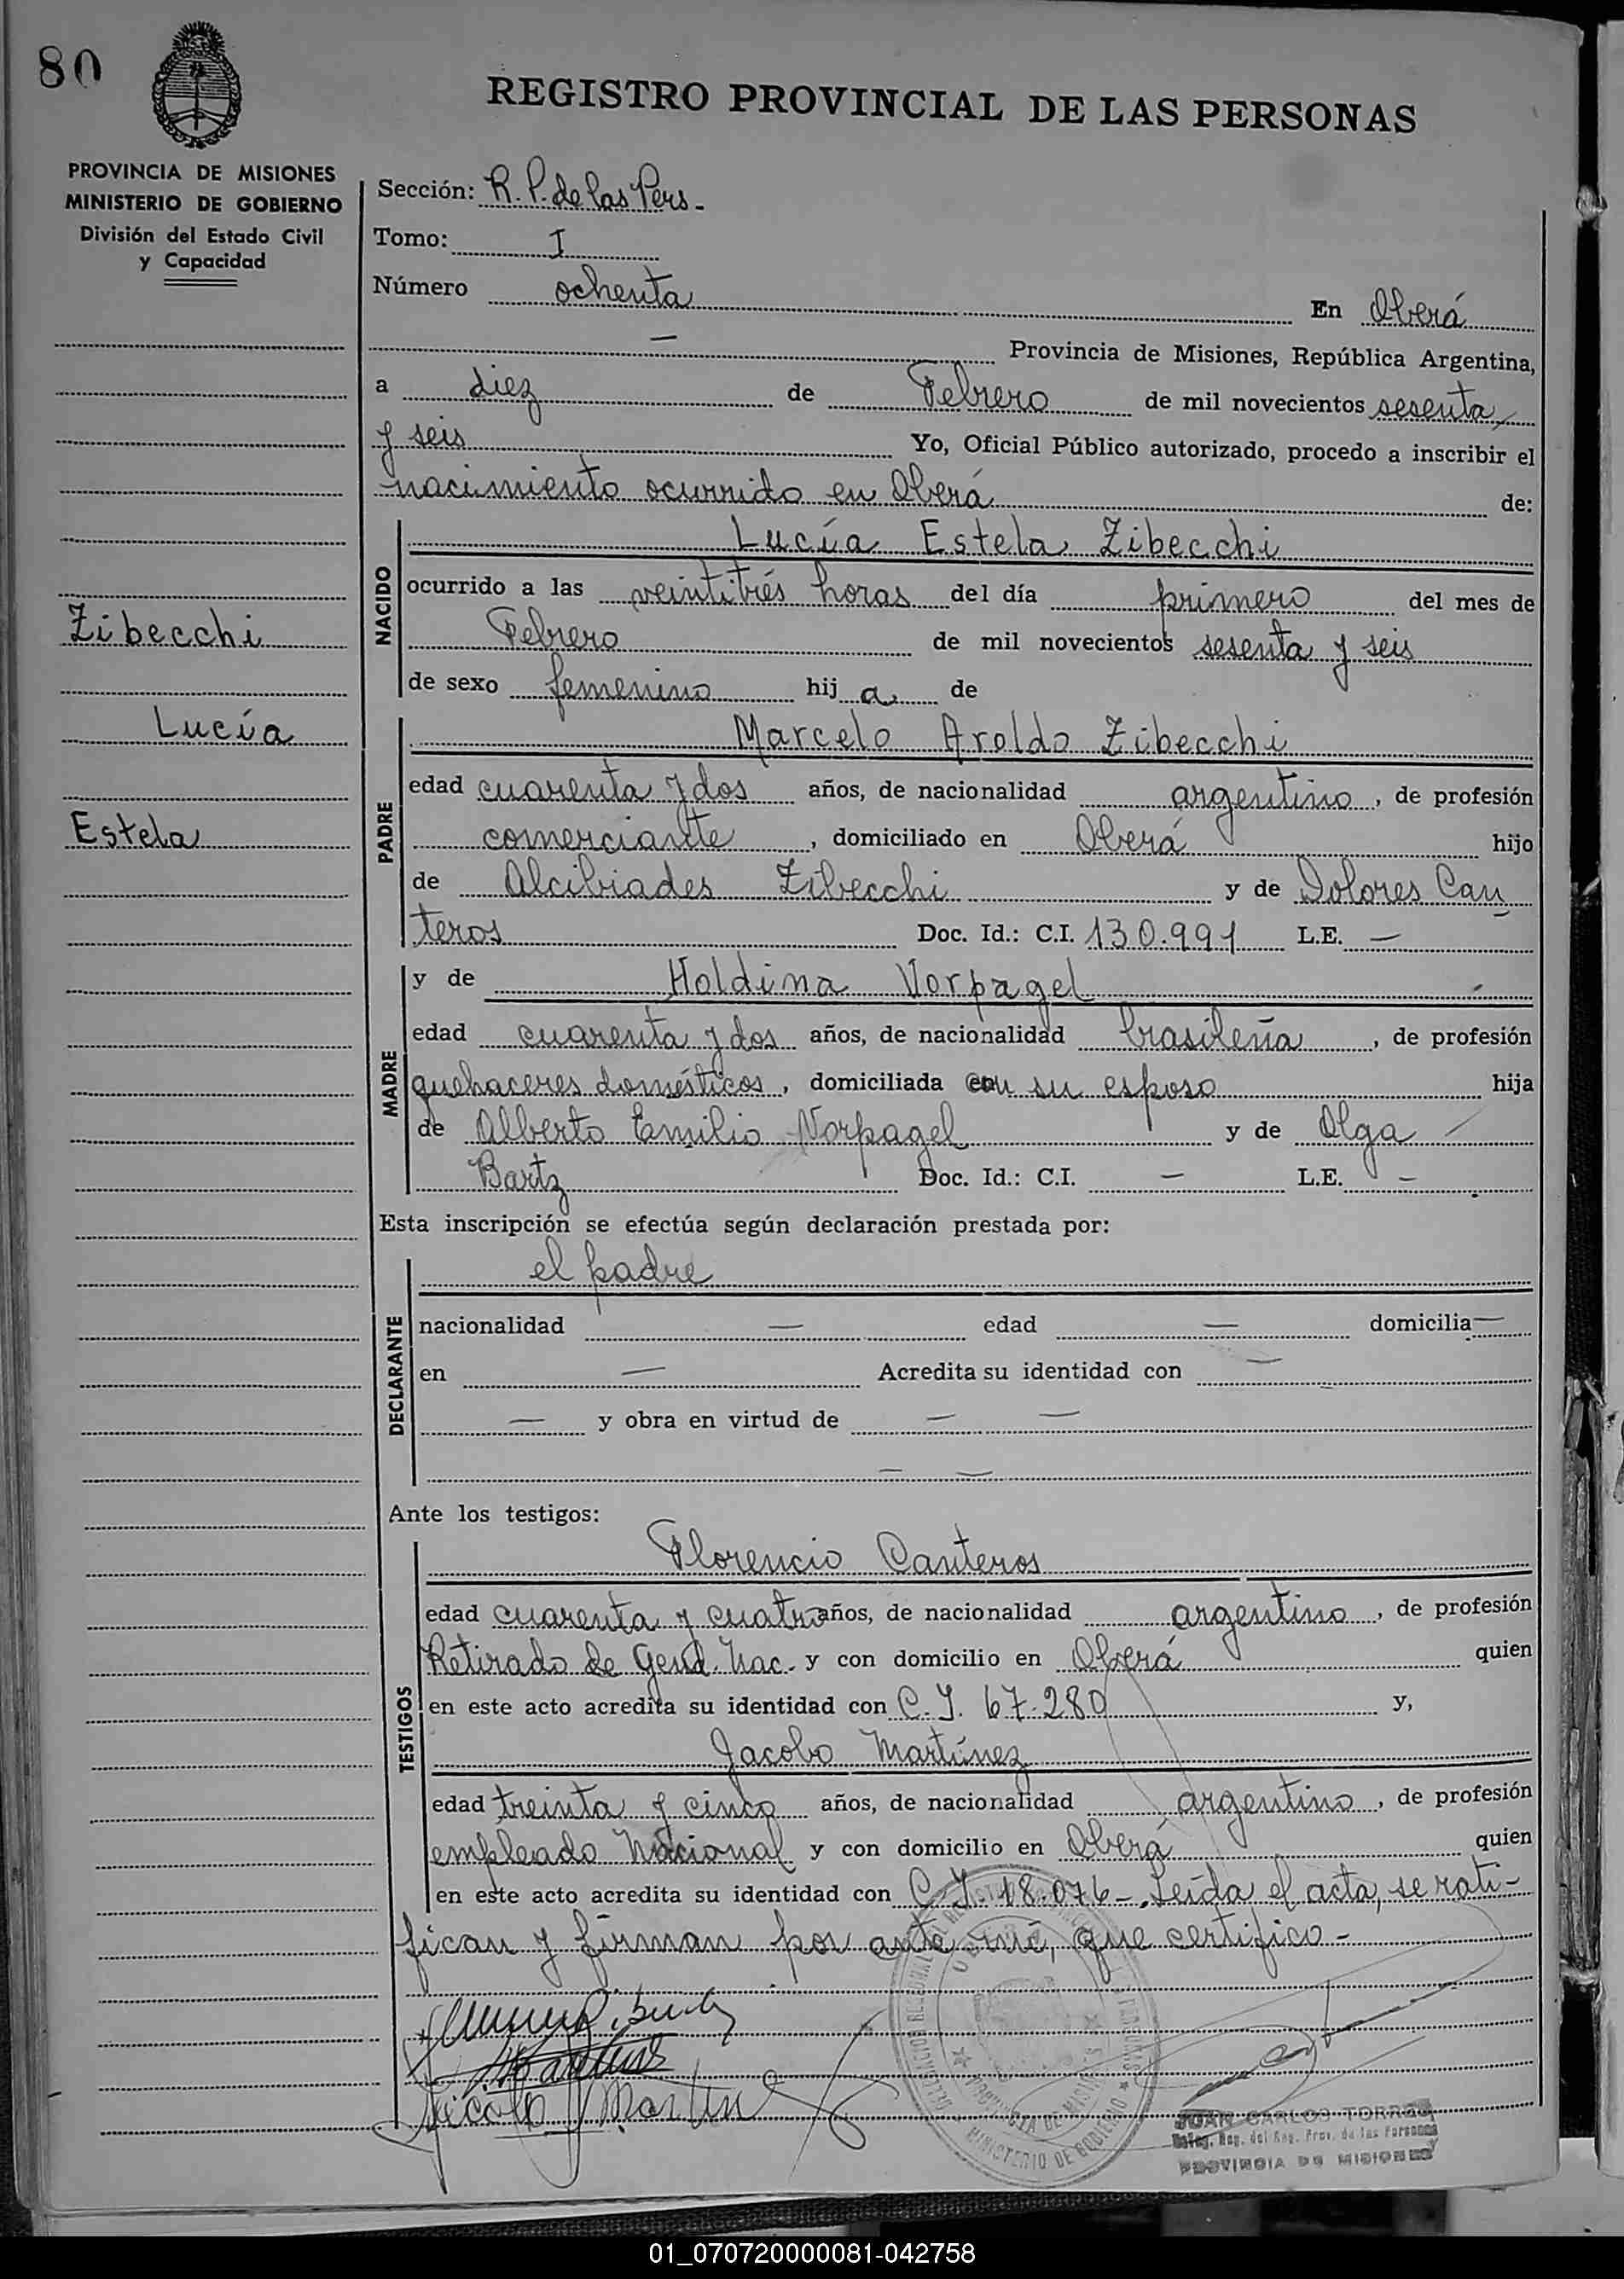 80
REGISTRO PROVINCIAL DE LAS PERSONAS
PROVINCIA DE MISIONES
MINISTERIO DE GOBIERNO
División del Estado Civil
y Capacidad
Sección: R. P. de las Pers.-
Tomo: I
Número ochenta En Oberá
— Provincia de Misiones, República Argentina,
a diez de Febrero de mil novecientos sesenta
y seis Yo, Oficial Público autorizado, procedo a inscribir el
nacimiento ocurrido en Oberá de:
NACIDO
Lucía Estela Zibecchi
ocurrido a las veintitrés horas del día primero del mes de
Febrero de mil novecientos sesenta y seis
de sexo femenino hij a de
Zibecchi
Lucía
Estela
PADRE
Marcelo Aroldo Zibecchi
edad cuarenta y dos años, de nacionalidad argentino, de profesión
comerciante, domiciliado en Oberá hijo
de Alcibiades Zibecchi y de Dolores Can
teros Doc. Id.: C.I. 130.991 L.E. —
MADRE
y de Holdina Vorpagel
edad cuarenta y dos años, de nacionalidad brasileña, de profesión
quehaceres domésticos, domiciliada con su esposo hija
de Alberto Emilio Vorpagel y de Olga
Bartz Doc. Id.: C.I. — L.E. —
Esta inscripción se efectúa según declaración prestada por:
DECLARANTE
el padre
nacionalidad — edad — domicilia —
en — Acredita su identidad con —
— y obra en virtud de — —
— —
Ante los testigos:
TESTIGOS
Florencio Canteros
edad cuarenta y cuatro años, de nacionalidad argentino, de profesión
Retirado de Gend. Nac. y con domicilio en Oberá quien
en este acto acredita su identidad con C.I. 67.280 y,
Jacobo Martínez
edad treinta y cinco años, de nacionalidad argentino, de profesión
empleado Nacional y con domicilio en Oberá quien
en este acto acredita su identidad con C.I. 18.076-. Leída el acta, se rati-
fican y firman por ante mí, que certifico-
PROVINCIA DE MISIONES
MINISTERIO DE GOBIERNO
JUAN CARLOS TORRES
Deleg. Reg. del Reg. Prov. de las Personas
PROVINCIA DE MISIONES
01_070720000081-042758